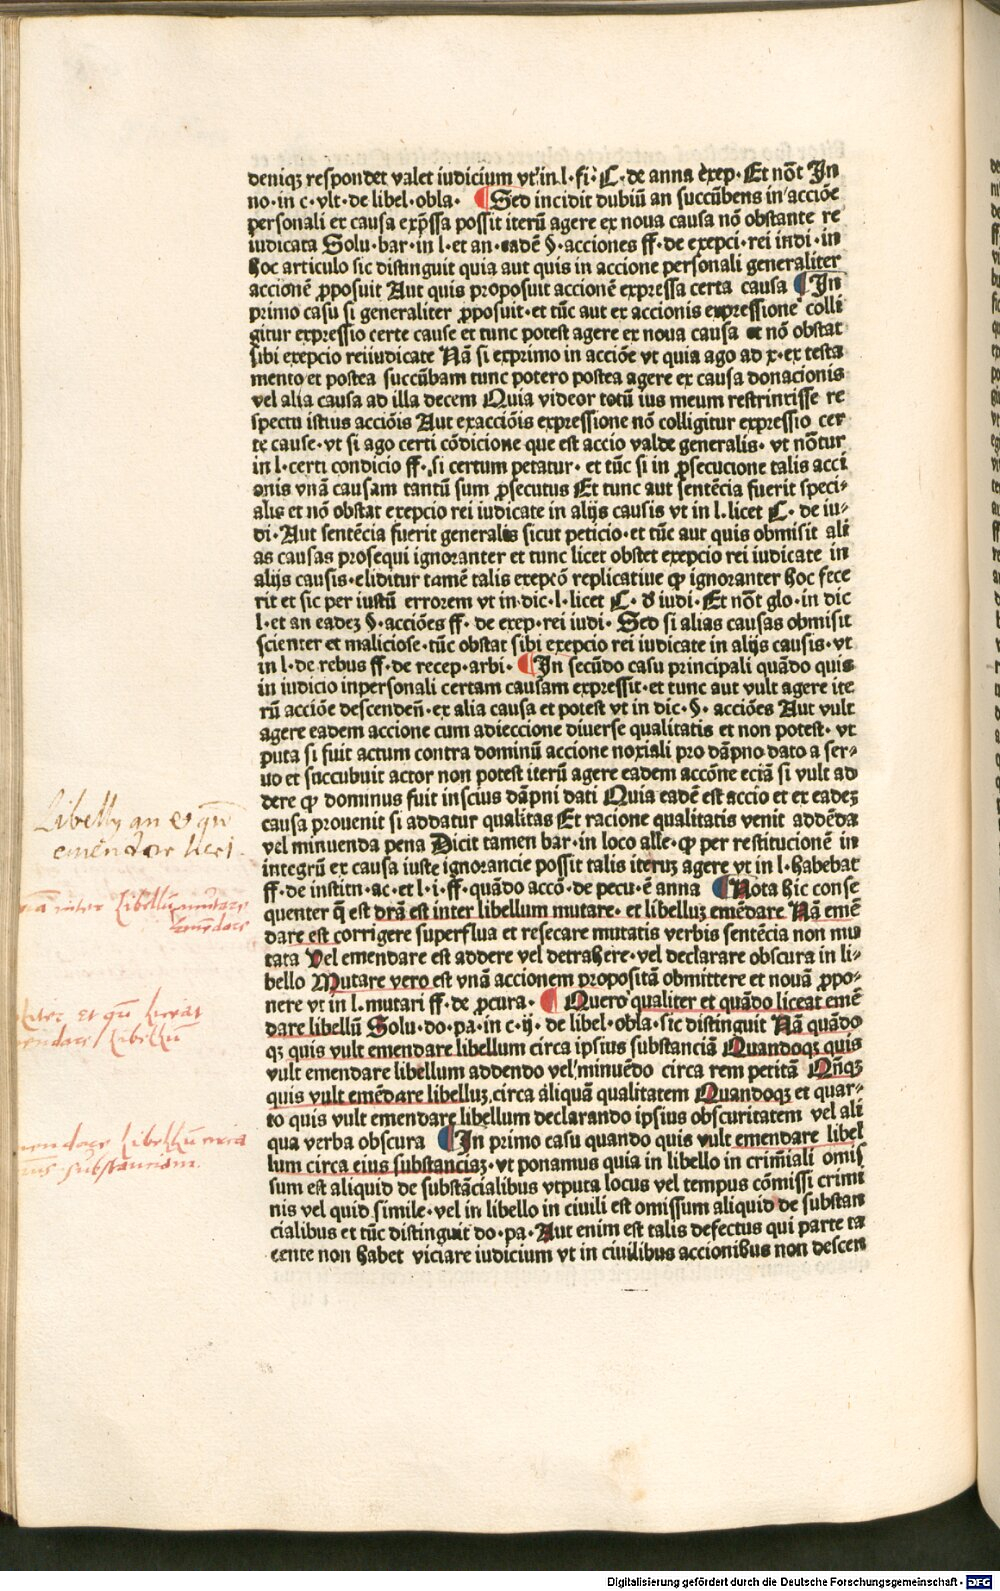 deniqꝫ respondet valet iudicium vt in l·fi· C·de anna exep·Et nōt In
no·in c·vlt·de libel·obla· ¶Sed incidit dubiū an succūbens in acciōe
personali ex causa exp̄ssa possit iterū agere ex noua causa nō obstante re
iudicata Solu·bar·in l·et an·eadē §·acciones ff·de exepci·rei indi·in
hoc articulo sic distinguit quia aut quis in accione personali generaliter
accionē ꝓposuit Aut quis proposuit accionē expressa certa causa ¶In
primo casu si generaliter ꝓposuit·et tūc aut ex accionis expressione colli
gitur expressio certe cause et tunc potest agere ex noua causa et nō obstat
sibi exepcio reiiudicate Nā si exprimo in acciōe vt quia ago ad x·ex testa
mento et postea succūbam tunc potero postea agere ex causa donacionis
vel alia causa ad illa decem Quia videor totū ius meum restrinxisse re
spectu istius acciōis Aut exacciōis expressione nō colligitur expressio cer
te cause·vt si ago certi cōdicione que est accio valde generalis· vt nōtur
in l·certi condicio ff·si certum petatur· et tūc si in ꝓsecucione talis acci
onis vnā causam tantū sum ꝓsecutus Et tunc aut sentēcia fuerit speci-
alis et nō obstat exepcio rei iudicate in alijs causis vt in l.licet C·de iu-
di·Aut sentēcia fuerit generalis sicut peticio·et tūc aut quis obmisit ali
as causas prosequi ignoranter et tunc licet obstet exepcio rei iudicate in
alijs causis·eliditur tamē talis exepcō replicatiue ꝙ ignoranter hoc fece
rit et sic per iustū errorem vt in·dic·l·licet C·d iudi·Et nōt glo·in dic
l·et an eadez §·acciōes ff·de exep·rei iudi· Sed si alias causas obmisit
scienter et maliciose·tūc obstat sibi exepcio rei iudicate in alijs causis·vt
in l·de rebus ff·de recep·arbi· ¶In secūdo casu principali quādo quis
in iudicio inpersonali certam causam expressit·et tunc aut vult agere ite
rū acciōe descendeñ·ex alia causa et potest vt in dic·§·acciōes Aut vult
agere eadem accione cum adieccione diuerse qualitatis et non potest· vt
puta si fuit actum contra dominū accione noxiali pro dāpno dato a ser-
uo et succubuit actor non potest iterū agere eadem accōne eciā si vult ad
dere ꝙ dominus fuit inscius dāpni dati Quia eadē est accio et ex eadeꝫ
causa prouenit si addatur qualitas Et racione qualitatis venit addēda
vel minuenda pena Dicit tamen bar·in loco alle·ꝙ per restitucionē in
integrū ex causa iuste ignorancie possit talis iteruꝫ agere vt in l·habebat
ff·de institn·ac·et l·i·ff·quādo accō·de pecu·ē anna ¶Nota hic conse
quenter q̄ est drā est inter libellum mutare·et libelluꝫ emēdare Nā emē
dare est corrigere superflua et resecare mutatis verbis sentēcia non mu
tata Vel emendare est addere vel detrahere·vel declarare obscura in li-
bello Mutare vero est vnā accionem propositā obmittere et nouā ꝓpo-
nere vt in l·mutari ff·de ꝓcura· ¶Quero qualiter et quādo liceat emē
dare libellū Solu·do·pa·in c·ij·de libel·obla·sic distinguit Nā quādo
qꝫ quis vult emendare libellum circa ipsius substanciā Quandoqꝫ quis
vult emendare libellum addendo vel minuēdo circa rem petitā Qn̄qꝫ
quis vult emēdare libelluꝫ circa aliquā qualitatem Quandoqꝫ et quar-
to quis vult emendare libellum declarando ipsius obscuritatem vel ali
qua verba obscura ¶In primo casu quando quis vult emendare libel
lum circa eius substanciaꝫ·vt ponamus quia in libello in crim̄iali omis
sum est aliquid de substācialibus vtputa locus vel tempus cōmissi crimi
nis vel quid simile·vel in libello in ciuili est omissum aliquid de substan
cialibus et tūc distinguit do·pa·Aut enim est talis defectus qui parte ta
cente non habet viciare iudicium vt in ciuilibus accionibus non descen
Libellꝯ an et qn̄
emendar liceri
inter libellū mutare
emēdare
et qn̄ liceat
emendare libellū
emendare libellū circa
substanciam.
Digitalisierung gefördert durch die Deutsche Forschungsgemeinschaft - DFG